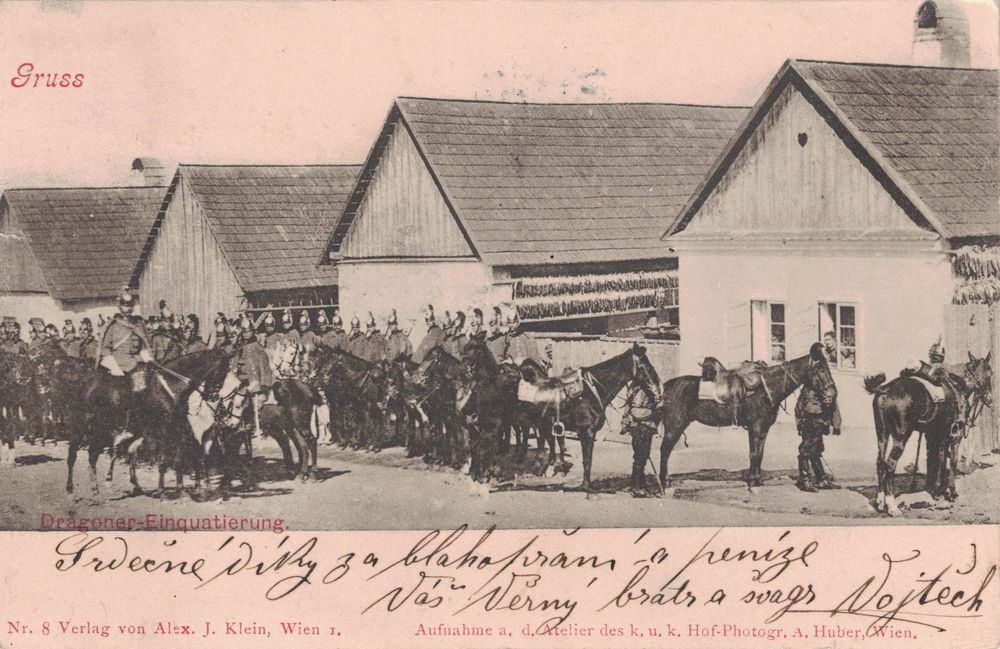 Gruss
Dragoner-Einquatierung.
Srdečné díky za blahopřání a peníze
Váš Věrný bratr a švagr Vojtěch
Nr. 8 Verlag von Alex. J. Klein, Wien 1. Aufnahme a. d. Atelier des k. u. k. Hof-Photogr. A. Huber, Wien.